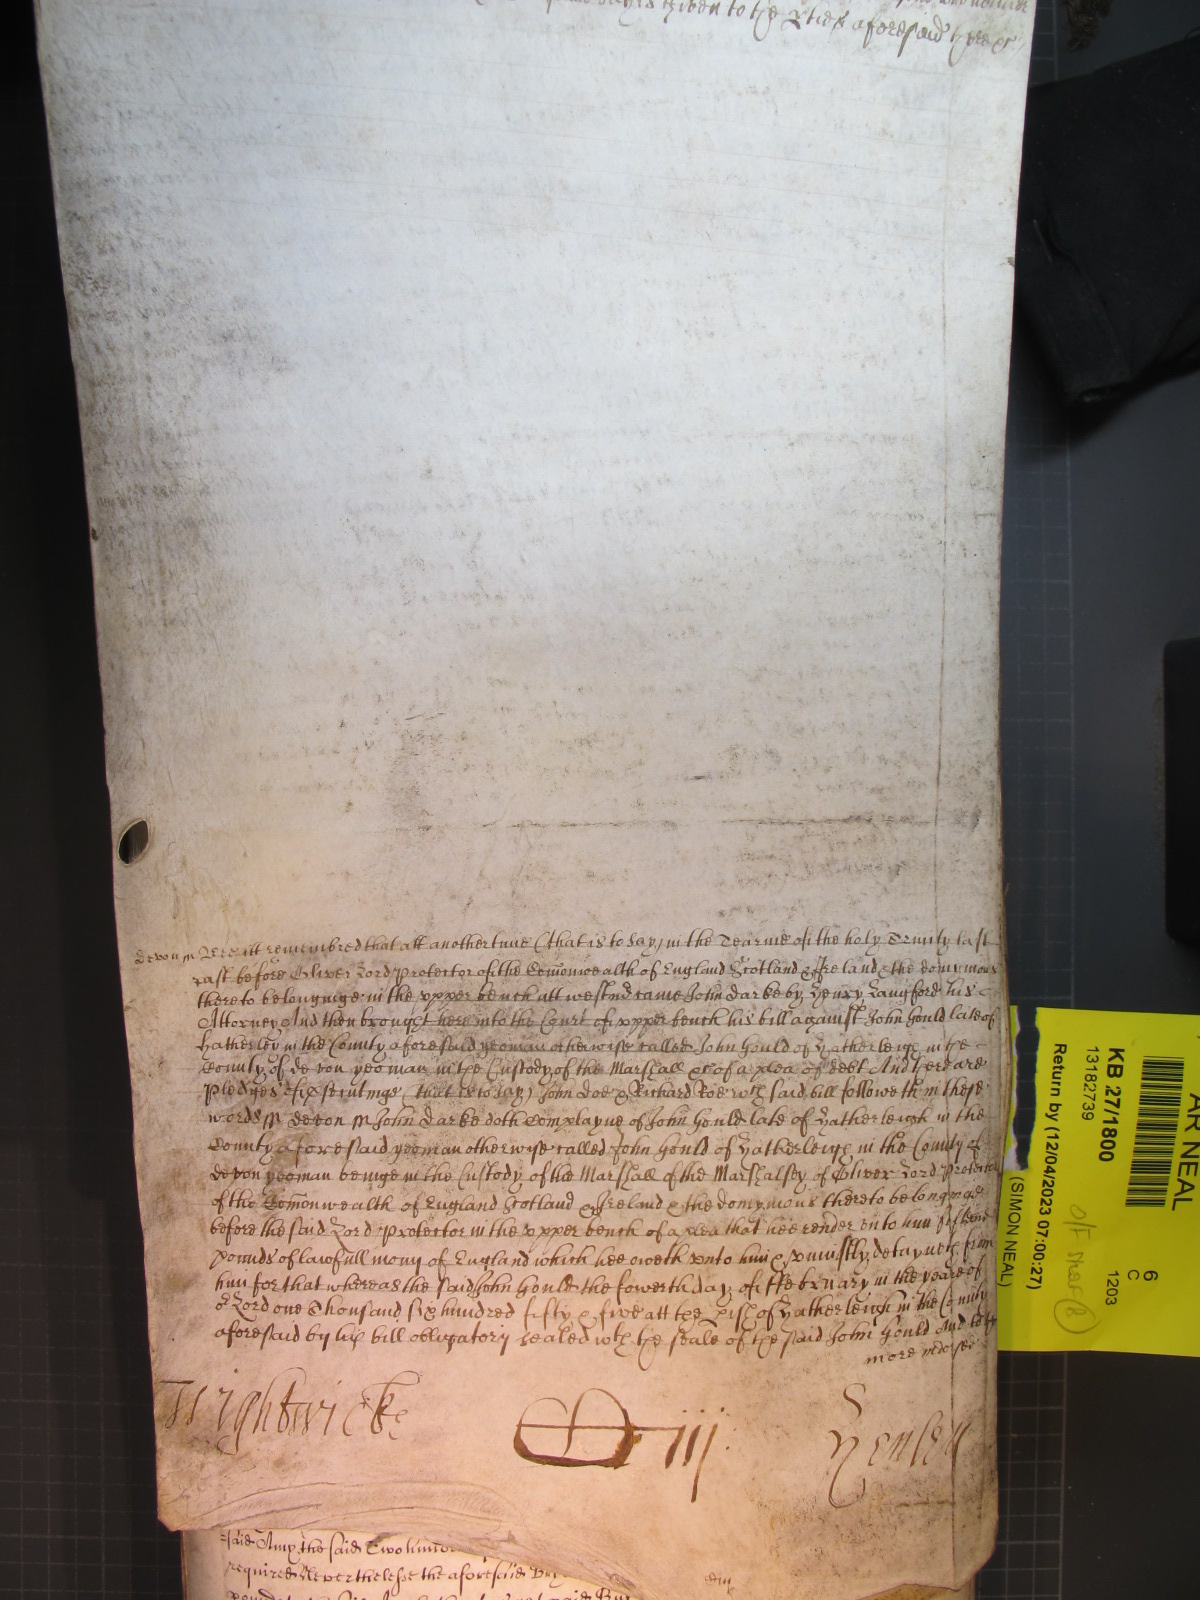 given to the pties aforesaid here &c
devon ss Bee itt remembred that att another time (that is to say) in the Tearme of the holy Trinity last
past before Oliver Lord Protector of the Comonwealth of England Scotland & Ireland & the dominions
thereto belonginge in the vpper bench att westmr came John Darke by Henry Langford his
Attorney And then brought here into the Court of vpper bench his bill against John Gould late of
Hatherley in the County aforesaid yeoman otherwise called John Gould of Hatherleigh in the
County of devon yeoman in the Custody of the Marshall &c of a plea of debt And there are
pledges of psecutinge (that is to say) John Doe & Richard Roe wch said bill followeth in these
words ss devon ss John Darke doth Complayne of John Gould late of Hatherleigh in the
County aforesaid yeoman otherwise called John Gould of Hatherleigh in the County of
devon yeoman beinge in the Custody of the Marshall of the Marshalsey of Oliver Lord Protector
of the Comonwealth of England Scotland & Ireland & the dominions thereto belonginge
before the said Lord Protector in the vpper bench of a plea that hee render vnto him
pounds of lawfull mony of England which hee oweth vnto him & vniustly detayneth from
him for that whereas the said John Gould the fowerth day of ffebruary in the yeare of
or Lord one thousand six hundred fifty & five att the pish of Hatherleigh in the County
aforesaid by his bill obligatory sealed wth the seale of the said John Gould And
more indorsed
Wightwicke
iij
Henley
said Amy the said Two
required Neverthelesse the aforesaid
AR NEAL
KB 27/1800
13182739
Return by (12/04/2023 07:00:27)
(SIMON NEAL)
6
C
1203